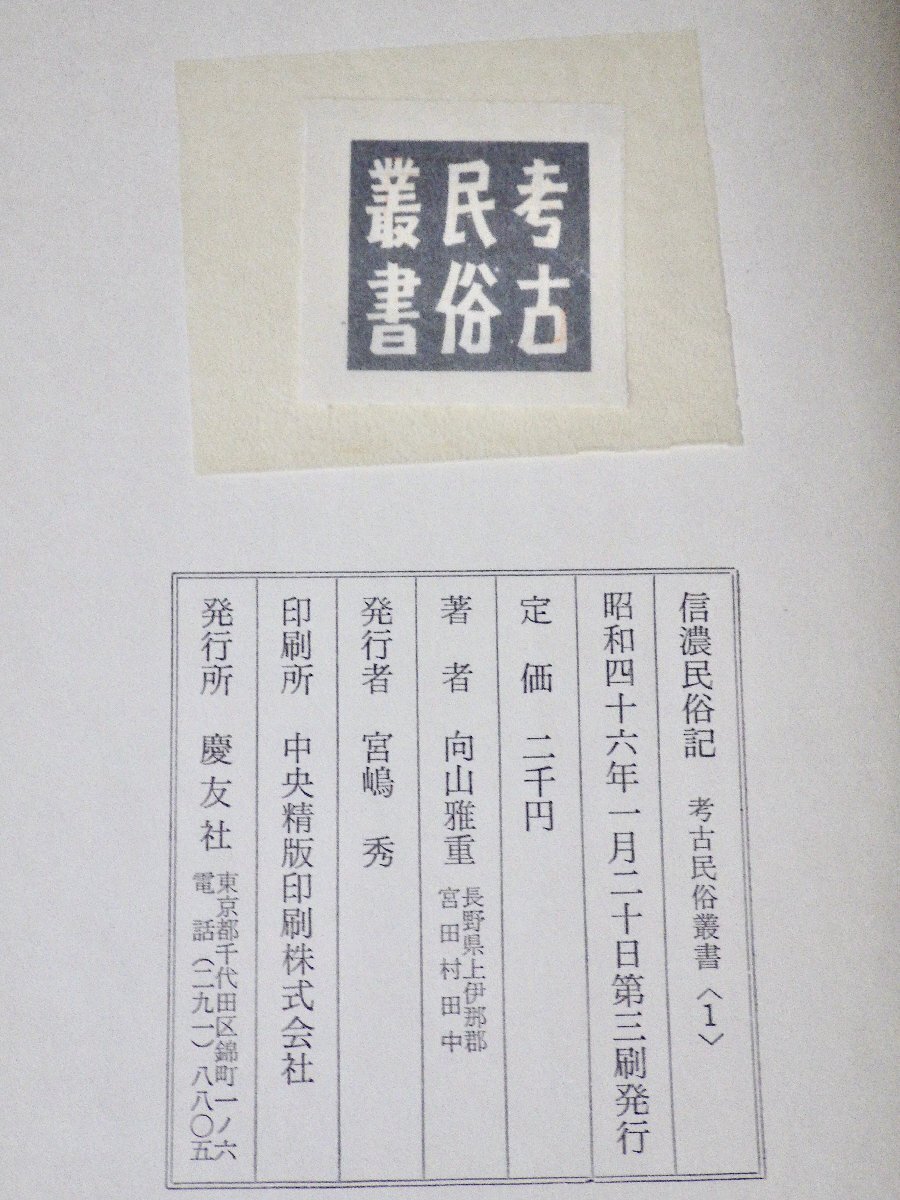 考古
民俗
叢書
信濃民俗記 考古民俗叢書〈1〉
昭和四十六年一月二十日第三刷発行
定価 二千円
著者 向山雅重 長野県上伊那郡
宮田村田中
発行者 宮嶋 秀
印刷所 中央精版印刷株式会社
発行所 慶友社 東京都千代田区錦町一ノ六
電話(二九一)八八〇五